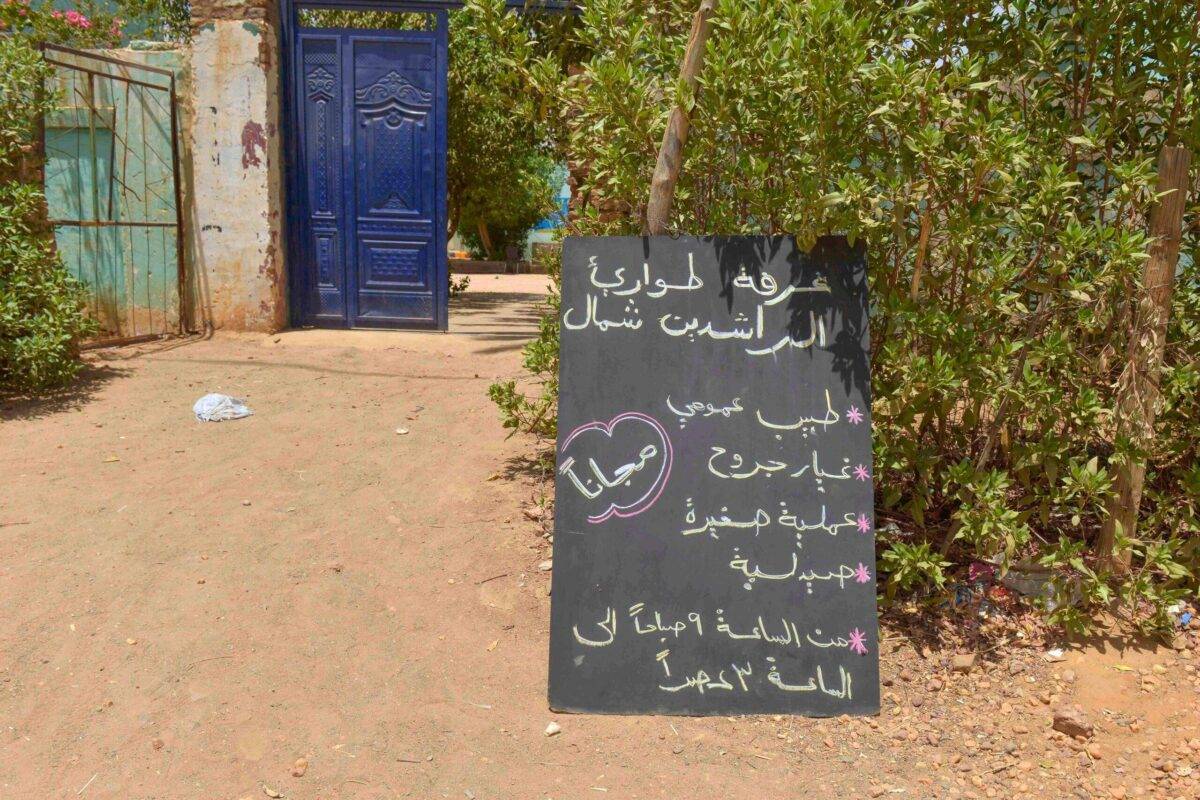 غرفة طوارئ
الراشدين شمال
* طبيب عمومي
* غيار جروح
* عملية صغيرة
* صيدلية
مجاناً
* من الساعة ٩ صباحاً الى
الساعة ٣ عصراً